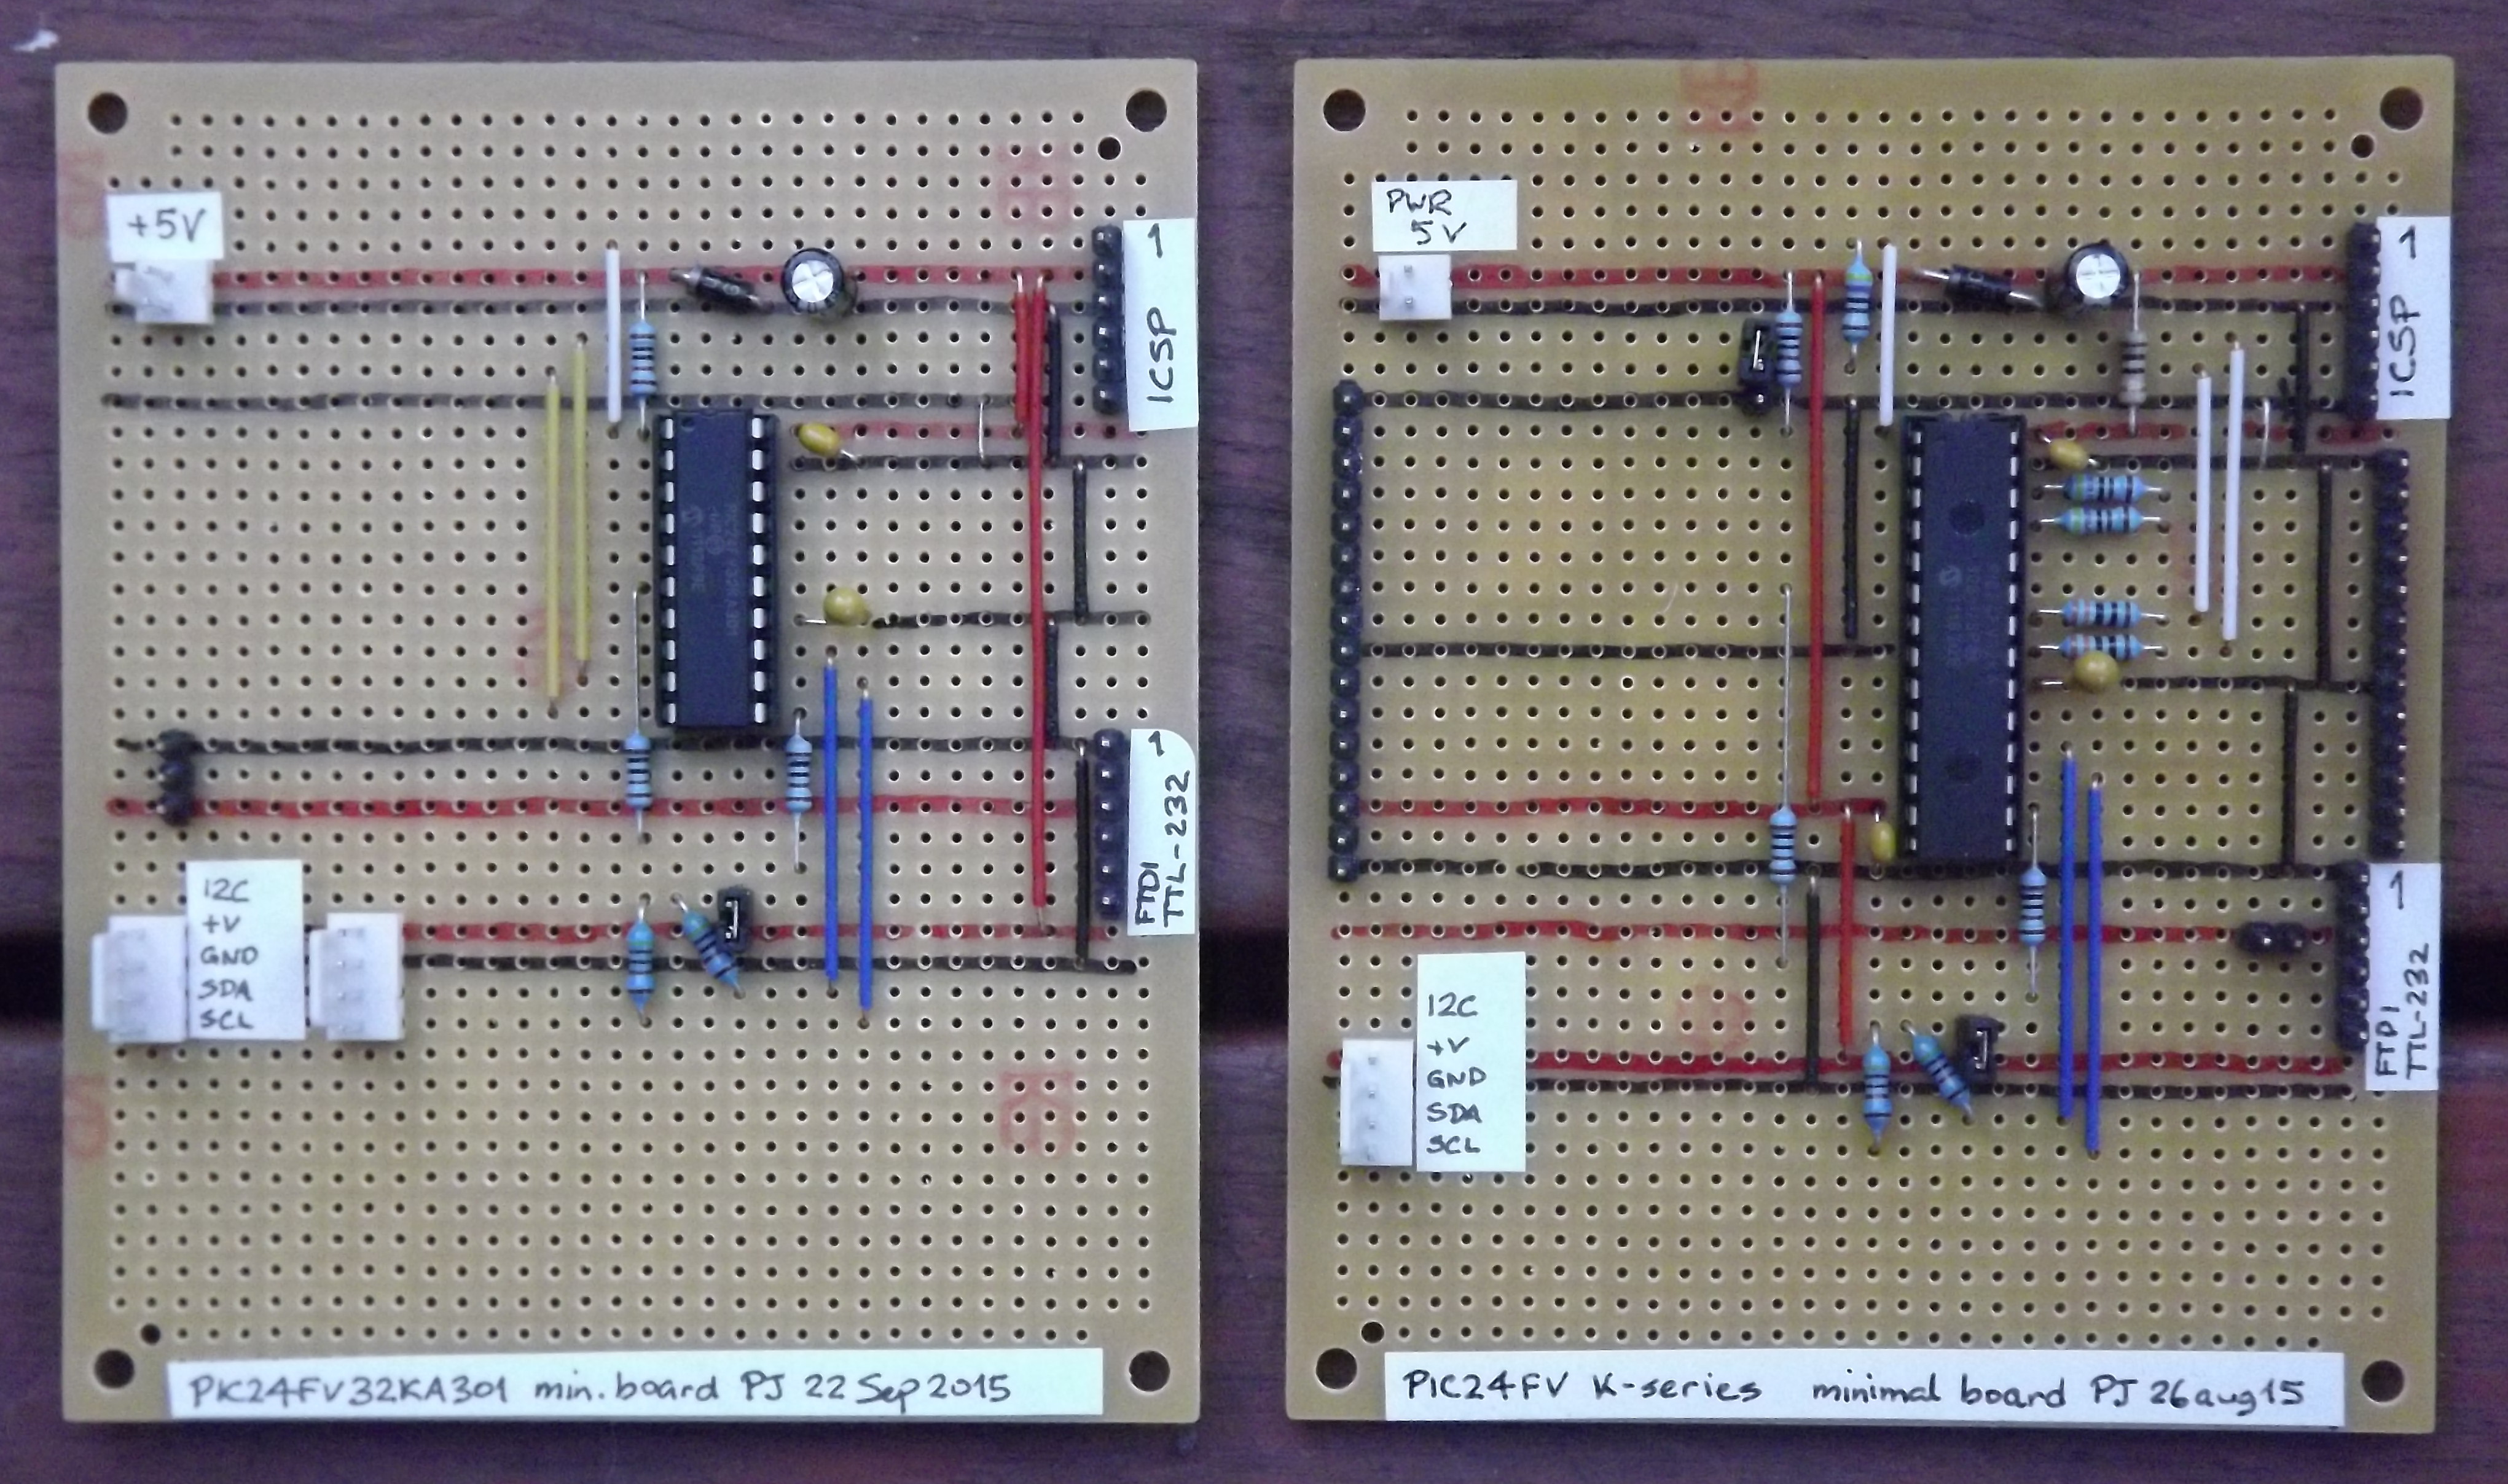 +5V
1
ICSP
1
FTDI
TTL-232
I2C
+V
GND
SDA
SCL
PIC24FV32KA301 min. board PJ 22 Sep 2015
PWR
5V
1
ICSP
1
FTDI
TTL-232
I2C
+V
GND
SDA
SCL
PIC24FV K-series minimal board PJ 26 aug 15